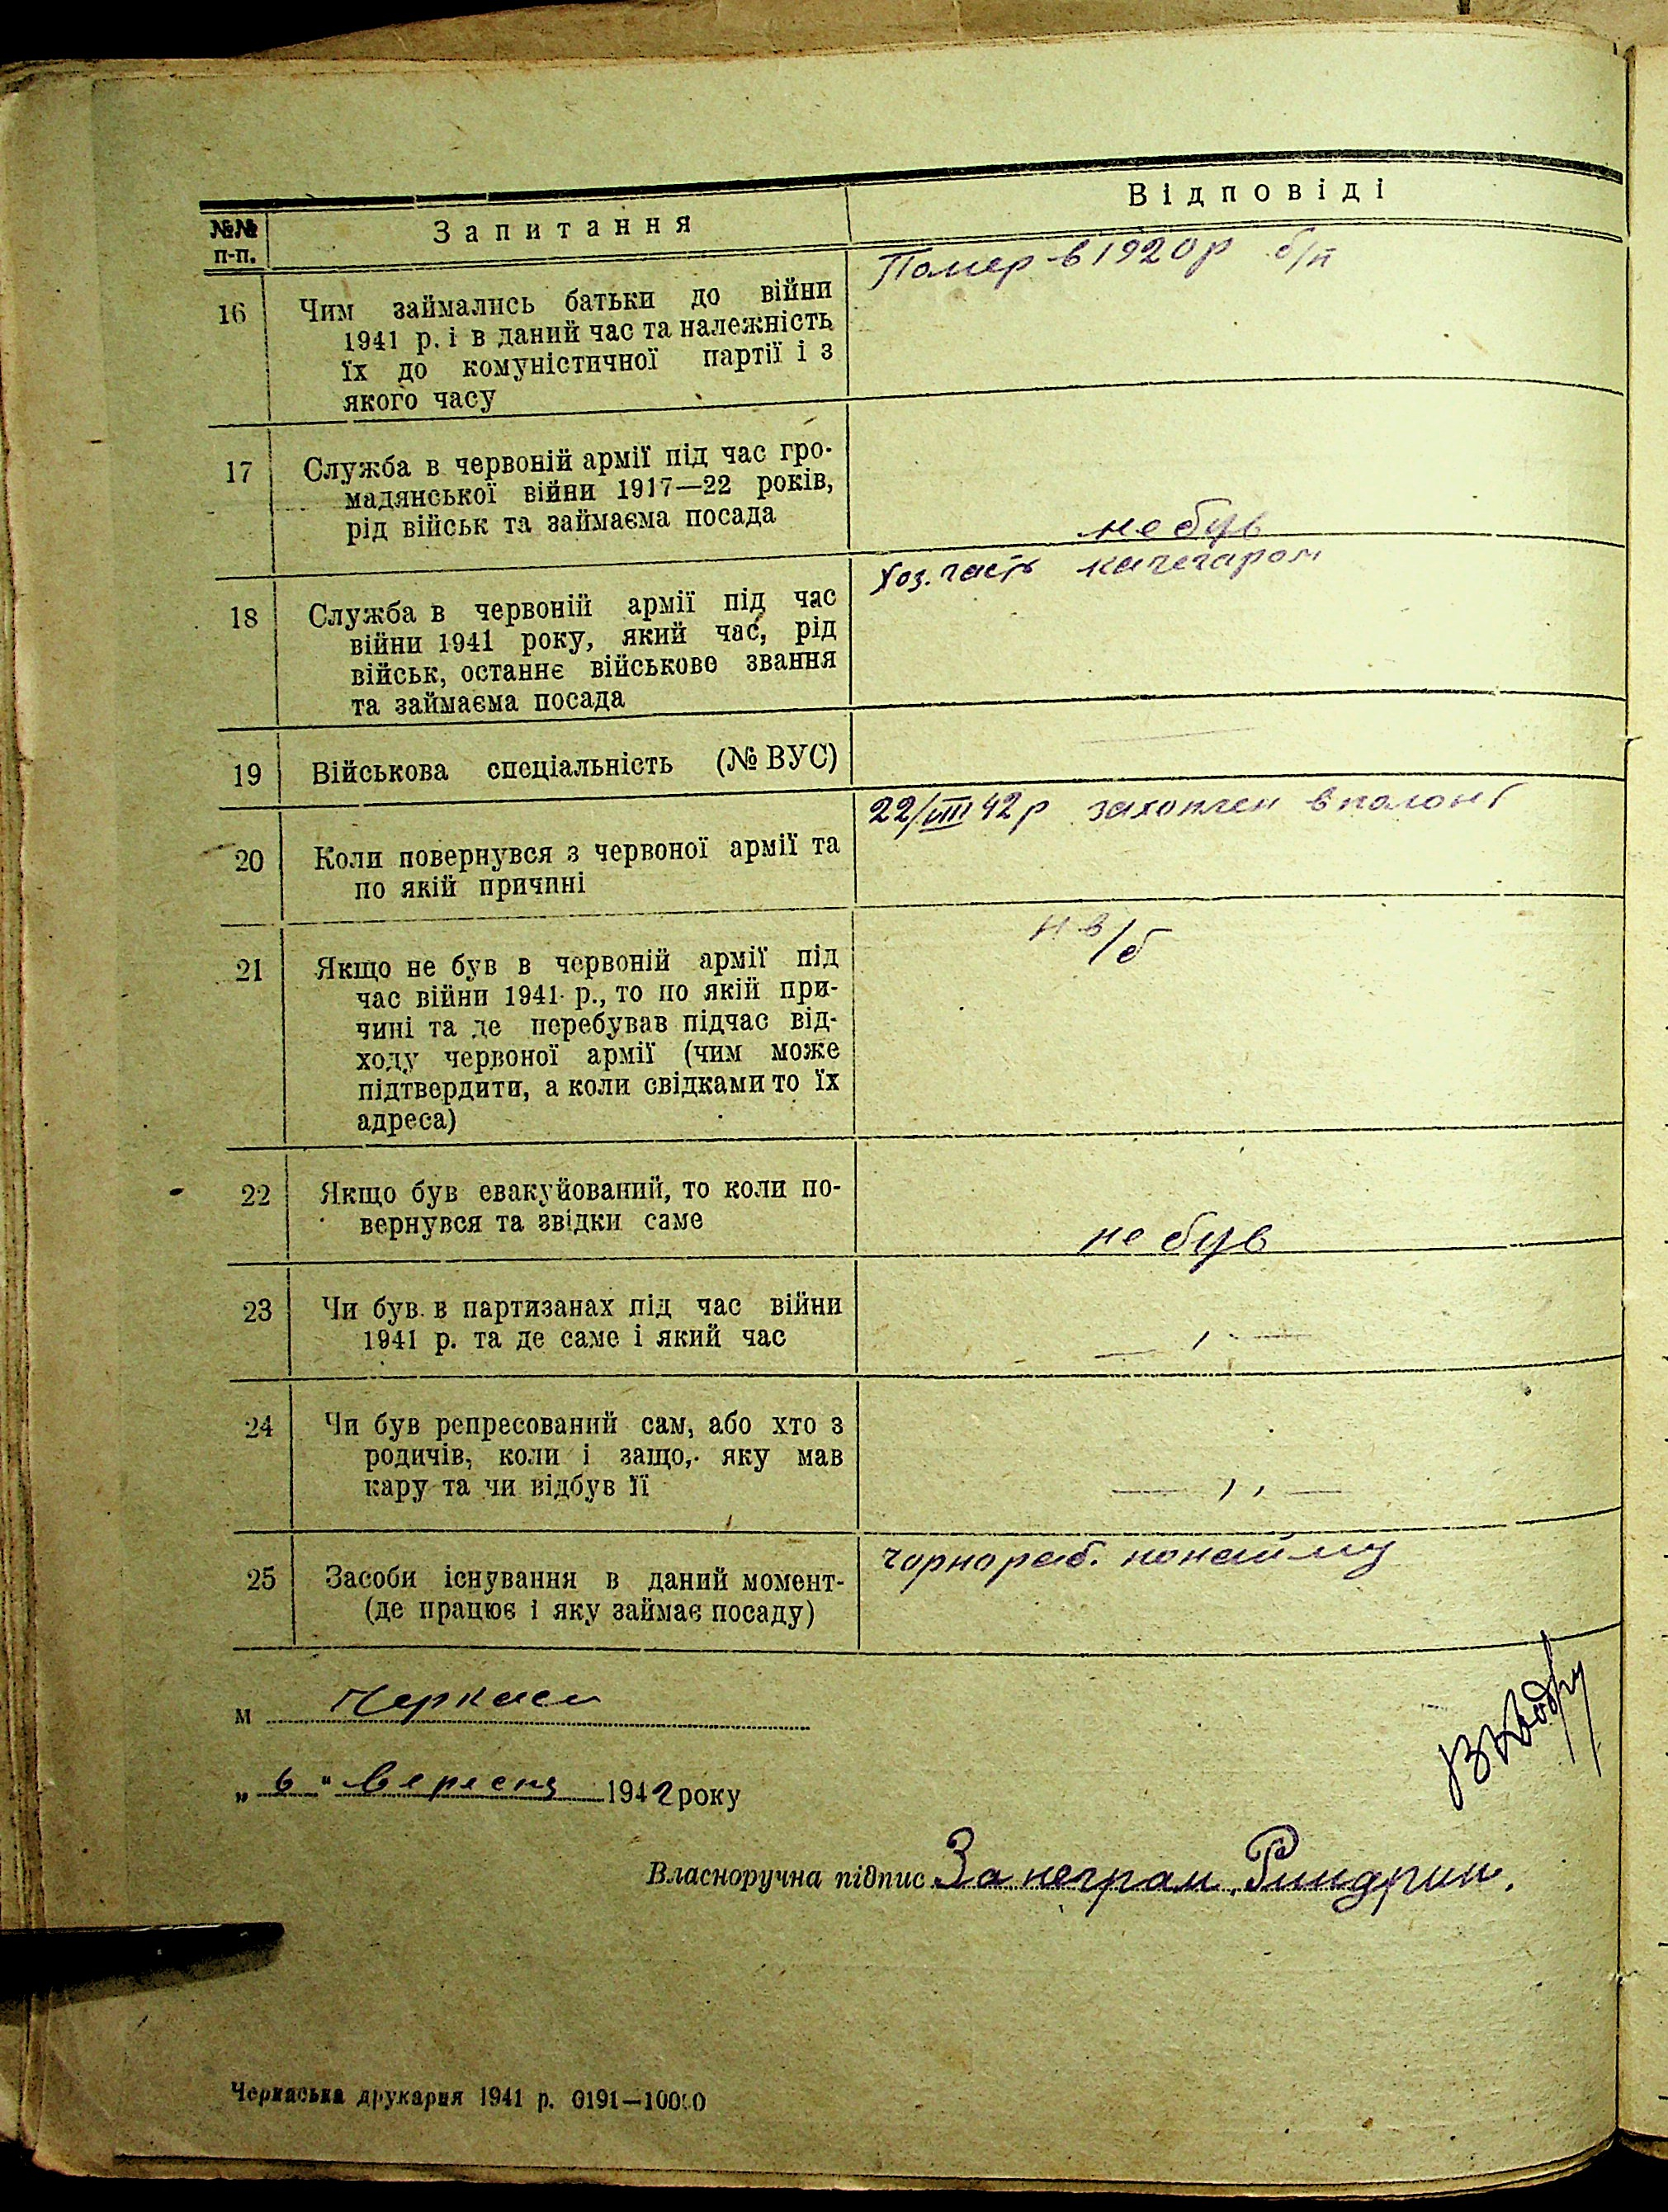 №№ п-п.
Запитання
Відповіді
16
Чим займались батьки до війни
1941 р. і в даний час та належність
їх до комуністичної партії і з
якого часу
Помер в 1920 р б/п
17
Служба в червоній армії під час гро-
мадянської війни 1917—22 років,
рід військ та займаєма посада
не був
18
Служба в червоній армії під час
війни 1941 року, який час, рід
військ, останнє військове звання
та займаєма посада
Хоз. часть качегаром
19
Військова спеціальність (№ ВУС)
—
20
Коли повернувся з червоної армії та
по якій причині
22/VIII 42 р захоплен в полон
21
Якщо не був в червоній армії під
час війни 1941 р., то по якій при-
чині та де перебував підчас від-
ходу червоної армії (чим може
підтвердити, а коли свідками то їх
адреса)
22
Якщо був евакуйований, то коли по-
вернувся та звідки саме
не був
23
Чи був в партизанах під час війни
1941 р. та де саме і який час
— , , —
24
Чи був репресований сам, або хто з
родичів, коли і защо, яку мав
кару та чи відбув її
— , , —
25
Засоби існування в даний момент-
(де працює і яку займає посаду)
чорнораб. понайму
м Черкаси
„ 6 " вересня 1942 року
Власноручна підпис За неграм.
Черкаська друкарня 1941 р. 0191—10000